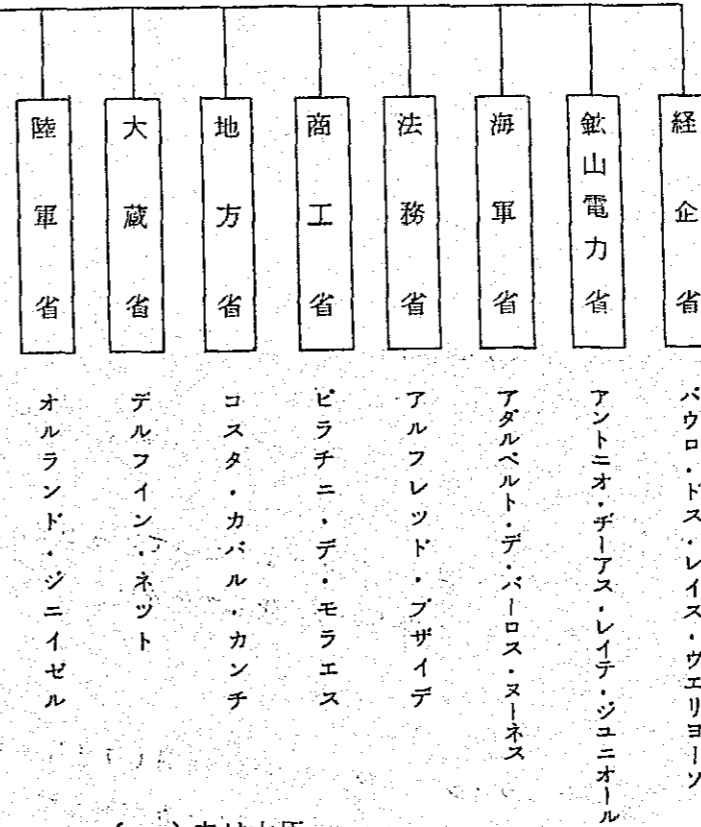 経企省
パウロ・ドス・レイス・ヴエリヨーソ
鉱山電力省
アントニオ・ヂーアス・レイテ・ジユニオール
海軍省
アダルベルト・デ・バーロス・ヌーネス
法務省
アルフレツド・ブザイデ
商工省
ピラチニ・デ・モラエス
地方省
コスタ・カバル・カンチ
大蔵省
デルフイン・ネツト
陸軍省
オルランド・ジエイゼル